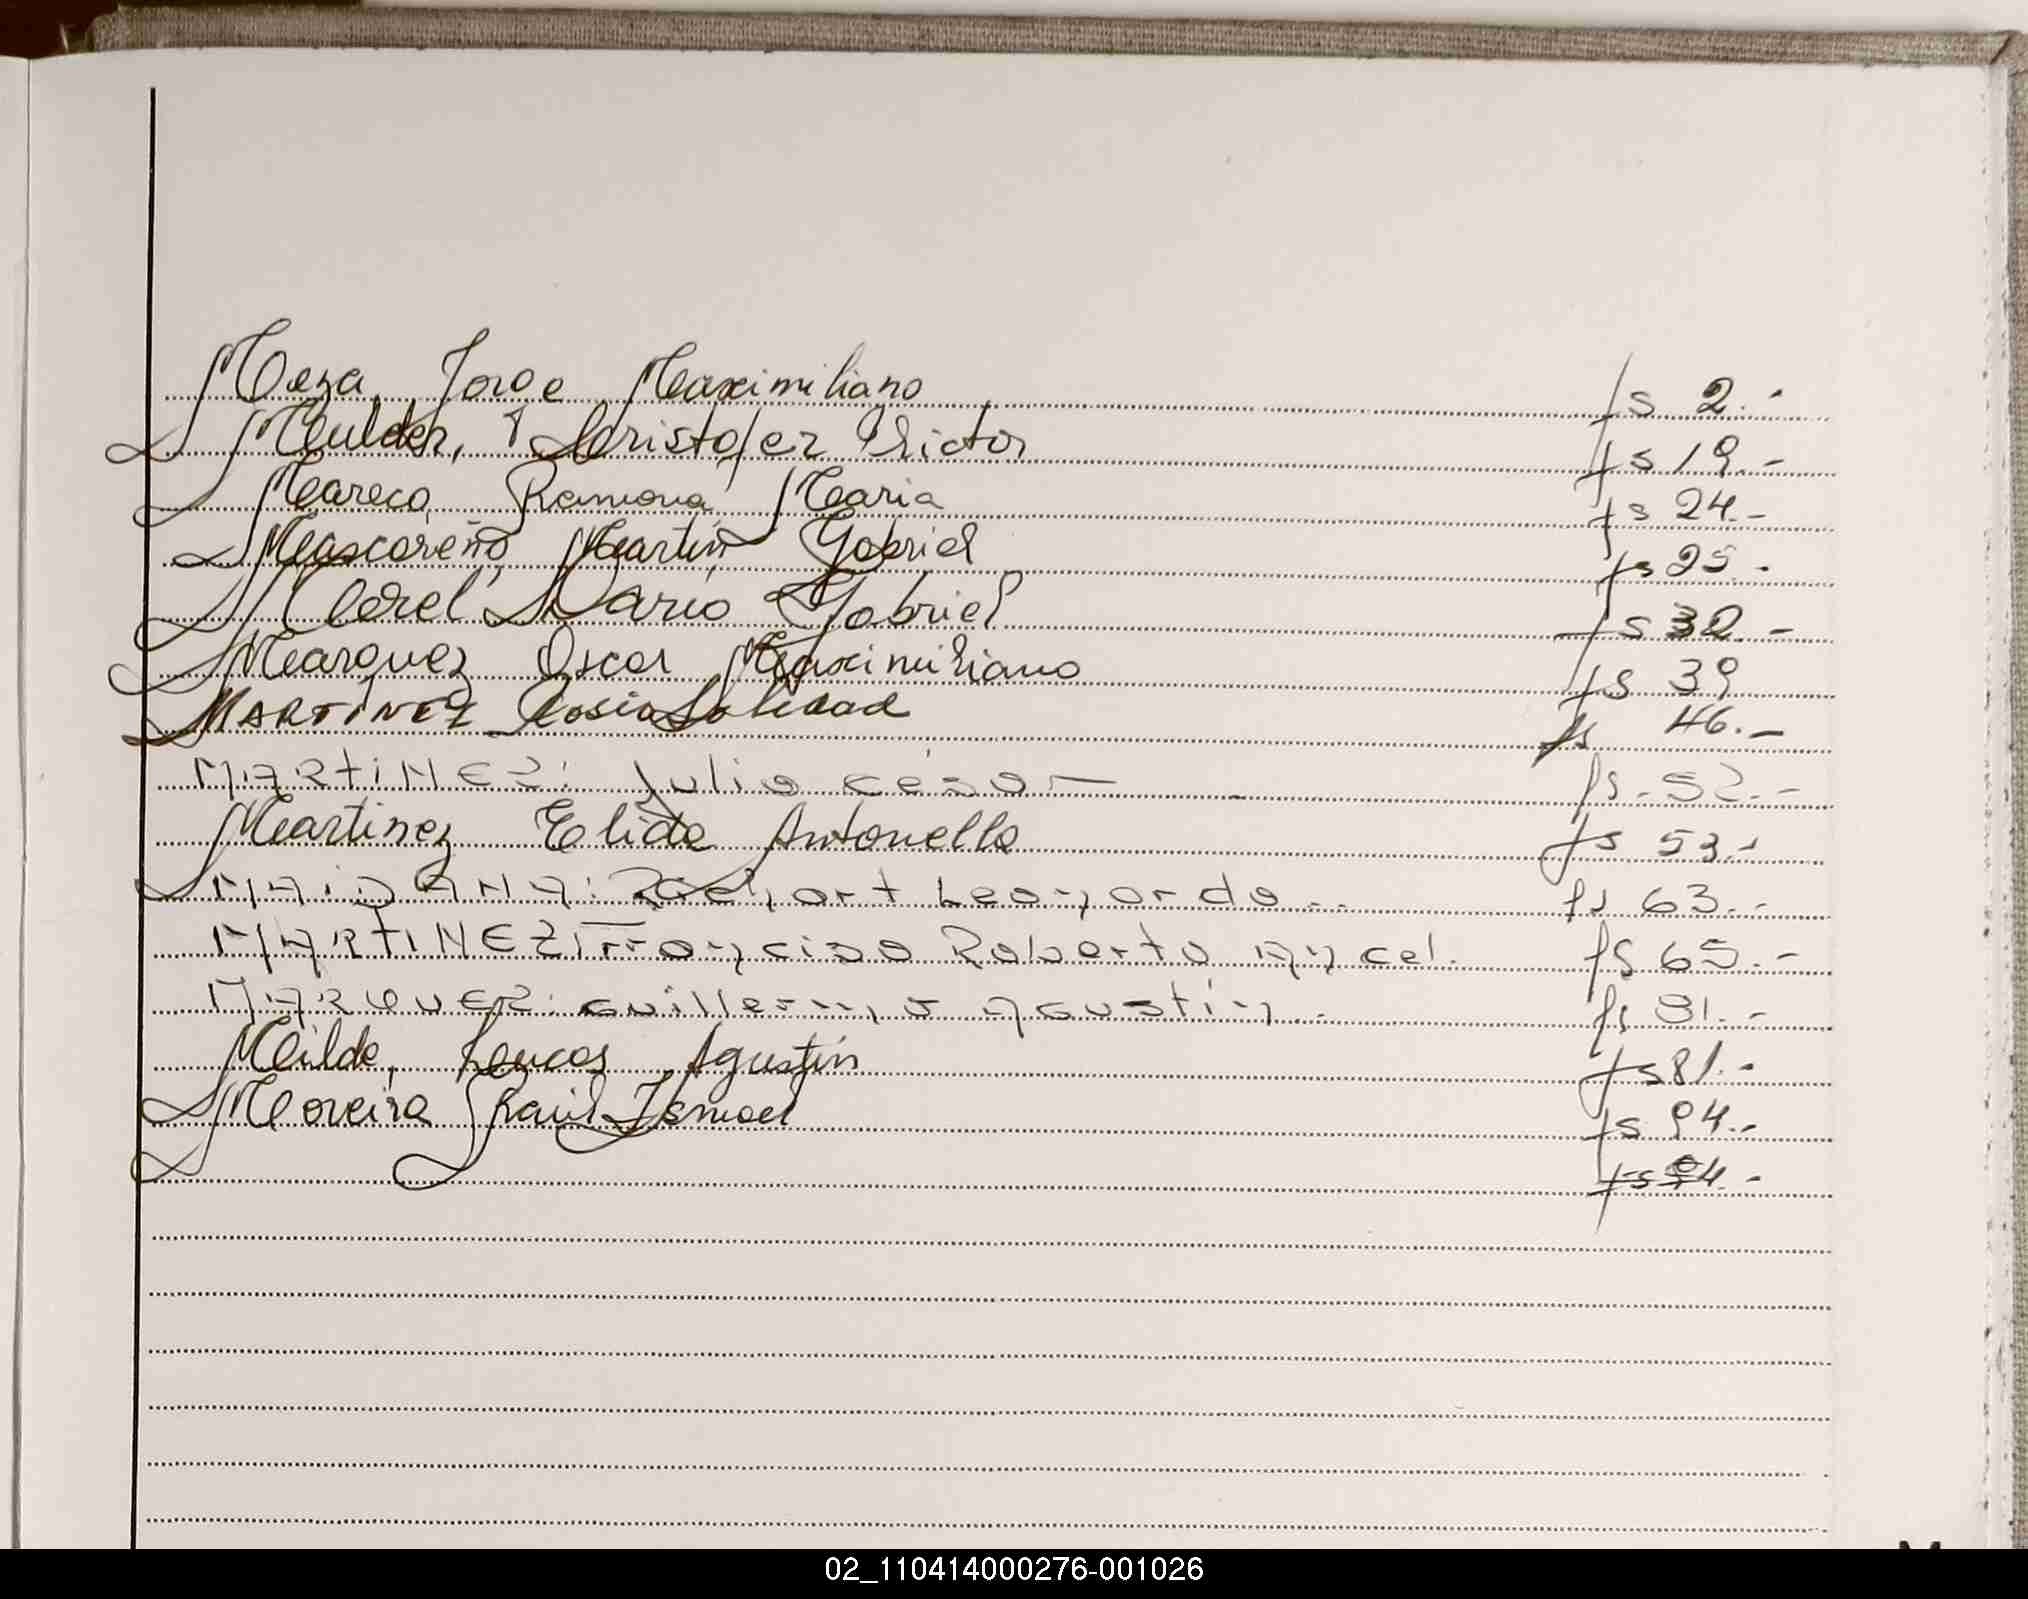 Meza, Jorge Maximiliano fs 2.-
Mulder, Cristofer Victor fs 19.-
Mareco, Ramona Maria fs 24.-
Mascareño, Martín Gabriel fs 25.-
Morel Dario Gabriel fs 32.-
Marquez Oscar Maximiliano fs 39
MARTÍNEZ Soledad fs 46.-
MARTINEZ: Julio césar fs. 52.-
Martinez Elida Antonella fs 53.-
MAIDANA: Richart Leonardo.. fs 63.-
MARTINEZ: Francisco Roberto Angel. fs 65.-
MARQUEZ: Guillermo Agustín.. fs 81.-
Milde, Lucas Agustín fs 81.-
Moreira Raúl Ismael fs 94.-
fs 94.-
M
02_110414000276-001026